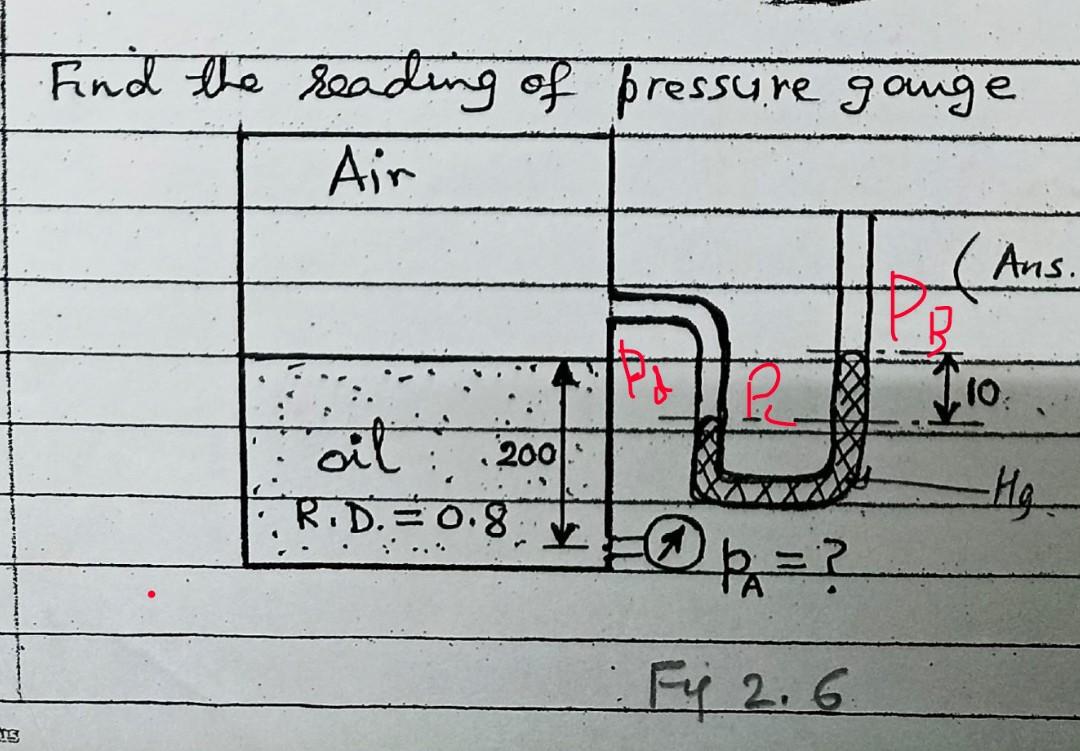 Find the reading of pressure gauge
Air
(Ans.
P_B
P_d
P_c
10
oil
200
Hg
R.D. = 0.8
p_A = ?
Fig 2.6